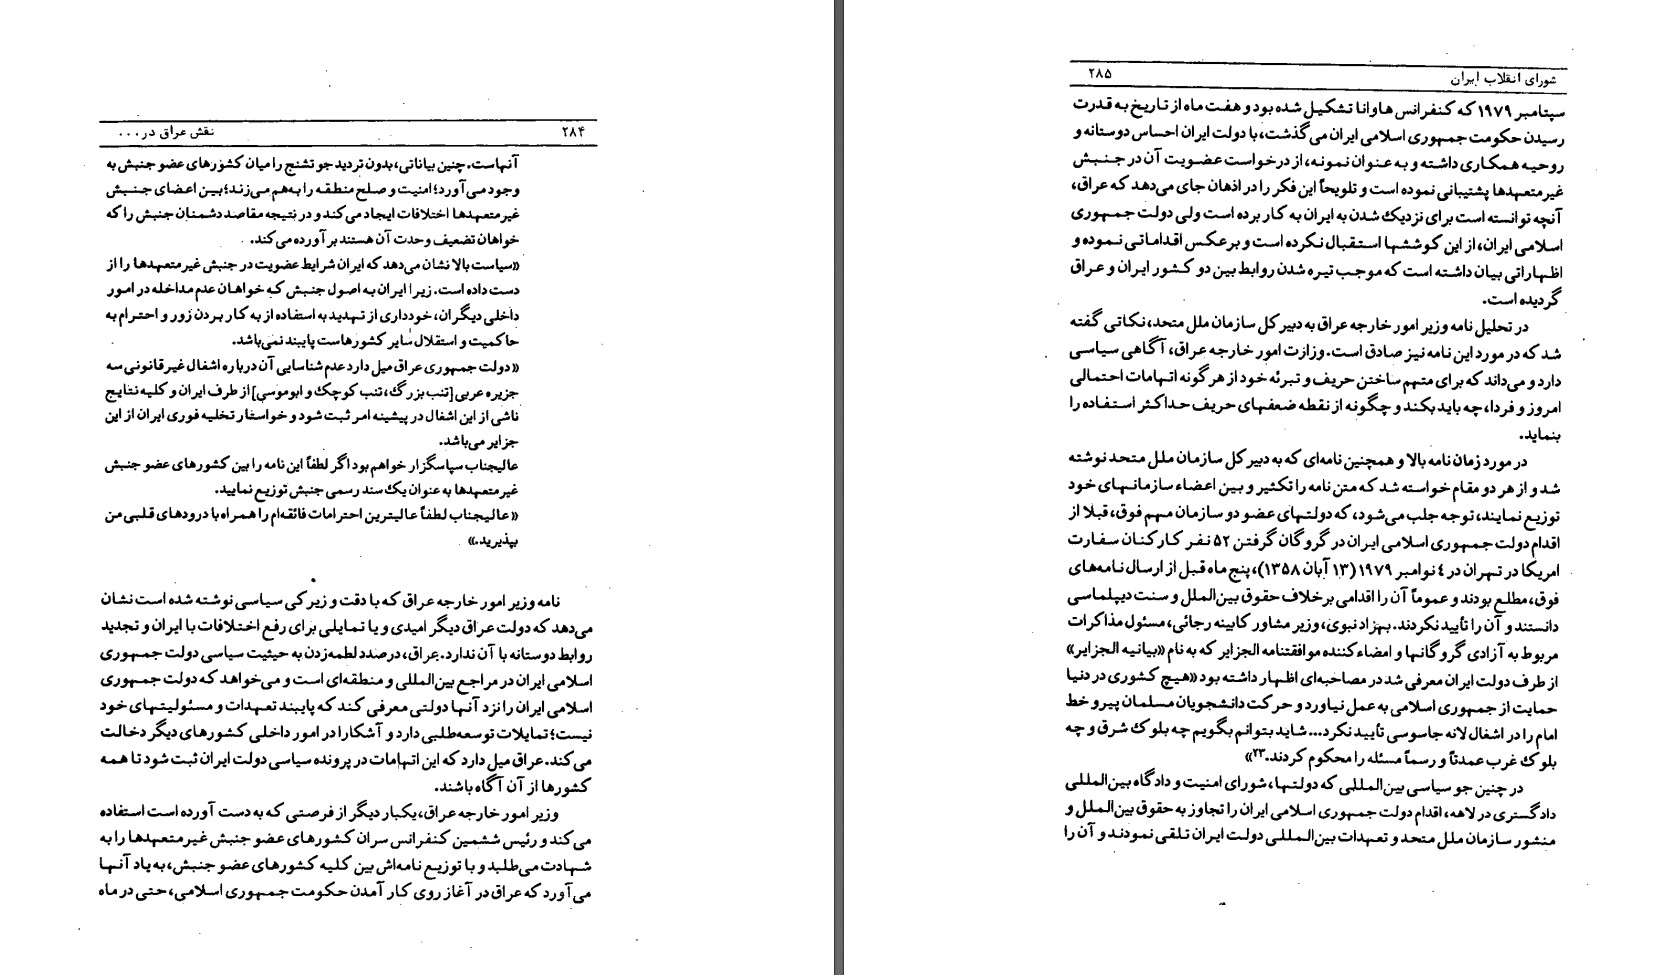 ۲۸۴ نقش عراق در...
آنهاست. چنین بیاناتی، بدون تردید جو تشنج را میان کشورهای عضو جنبش به
وجود می‌آورد؛ امنیت و صلح منطقه را به‌هم می‌زند؛ بین اعضای جنبش
غیرمتعهدها اختلافات ایجاد می‌کند و در نتیجه مقاصد دشمنان جنبش را که
خواهان تضعیف وحدت آن هستند برآورده می‌کند.
«سیاست بالا نشان می‌دهد که ایران شرایط عضویت در جنبش غیرمتعهدها را از
دست داده است. زیرا ایران به اصول جنبش که خواهان عدم مداخله در امور
داخلی دیگران، خودداری از تهدید به استفاده از به کار بردن زور و احترام به
حاکمیت و استقلال سایر کشورهاست پایبند نمی‌باشد.
«دولت جمهوری عراق میل دارد عدم شناسایی آن درباره اشغال غیرقانونی سه
جزیره عربی [تنب بزرگ، تنب کوچک و ابوموسی] از طرف ایران و کلیه نتایج
ناشی از این اشغال در پیشینه امر ثبت شود و خواستار تخلیه فوری ایران از این
جزایر می‌باشد.
عالیجناب سپاسگزار خواهم بود اگر لطفاً این نامه را بین کشورهای عضو جنبش
غیرمتعهدها به عنوان یک سند رسمی جنبش توزیع نمایید.
«عالیجناب لطفاً عالیترین احترامات فائقه‌ام را همراه با درودهای قلبی من
بپذیرید.»
نامه وزیر امور خارجه عراق که با دقت و زیرکی سیاسی نوشته شده است نشان
می‌دهد که دولت عراق دیگر امیدی و یا تمایلی برای رفع اختلافات با ایران و تجدید
روابط دوستانه با آن ندارد. عراق، درصدد لطمه‌زدن به حیثیت سیاسی دولت جمهوری
اسلامی ایران در مراجع بین‌المللی و منطقه‌ای است و می‌خواهد که دولت جمهوری
اسلامی ایران را نزد آنها دولتی معرفی کند که پایبند تعهدات و مسئولیتهای خود
نیست؛ تمایلات توسعه‌طلبی دارد و آشکارا در امور داخلی کشورهای دیگر دخالت
می‌کند. عراق میل دارد که این اتهامات در پرونده سیاسی دولت ایران ثبت شود تا همه
کشورها از آن آگاه باشند.
وزیر امور خارجه عراق، یکبار دیگر از فرصتی که به دست آورده است استفاده
می‌کند و رئیس ششمین کنفرانس سران کشورهای عضو جنبش غیرمتعهدها را به
شهادت می‌طلبد و با توزیع نامه‌اش بین کلیه کشورهای عضو جنبش، به یاد آنها
می‌آورد که عراق در آغاز روی کار آمدن حکومت جمهوری اسلامی، حتی در ماه
شورای انقلاب ایران ۲۸۵
سپتامبر ۱۹۷۹ که کنفرانس هاوانا تشکیل شده بود و هفت ماه از تاریخ به قدرت
رسیدن حکومت جمهوری اسلامی ایران می‌گذشت، با دولت ایران احساس دوستانه و
روحیه همکاری داشته و به عنوان نمونه، از درخواست عضویت آن در جنبش
غیرمتعهدها پشتیبانی نموده است و تلویحاً این فکر را در اذهان جای می‌دهد که عراق،
آنچه توانسته است برای نزدیک شدن به ایران به کار برده است ولی دولت جمهوری
اسلامی ایران، از این کوششها استقبال نکرده است و برعکس اقداماتی نموده و
اظهاراتی بیان داشته است که موجب تیره شدن روابط بین دو کشور ایران و عراق
گردیده است.
در تحلیل نامه وزیر امور خارجه عراق به دبیر کل سازمان ملل متحد، نکاتی گفته
شد که در مورد این نامه نیز صادق است. وزارت امور خارجه عراق، آگاهی سیاسی
دارد و می‌داند که برای متهم ساختن حریف و تبرئه خود از هرگونه اتهامات احتمالی
امروز و فردا، چه باید بکند و چگونه از نقطه ضعفهای حریف حداکثر استفاده را
بنماید.
در مورد زمان نامه بالا و همچنین نامه‌ای که به دبیر کل سازمان ملل متحد نوشته
شد و از هر دو مقام خواسته شد که متن نامه را تکثیر و بین اعضاء سازمانهای خود
توزیع نمایند، توجه جلب می‌شود، که دولتهای عضو دو سازمان مهم فوق، قبلا از
اقدام دولت جمهوری اسلامی ایران در گروگان گرفتن ۵۲ نفر کارکنان سفارت
امریکا در تهران در ٤ نوامبر ۱۹۷۹ (۱۳ آبان ۱۳۵۸)، پنج ماه قبل از ارسال نامه‌های
فوق، مطلع بودند و عموماً آن را اقدامی برخلاف حقوق بین‌الملل و سنت دیپلماسی
دانستند و آن را تأیید نکردند. بهزاد نبوی، وزیر مشاور کابینه رجائی، مسئول مذاکرات
مربوط به آزادی گروگانها و امضاءکننده موافقتنامه الجزایر که به نام «بیانیه الجزایر»
از طرف دولت ایران معرفی شد در مصاحبه‌ای اظهار داشته بود «هیچ کشوری در دنیا
حمایت از جمهوری اسلامی به عمل نیاورد و حرکت دانشجویان مسلمان پیرو خط
امام را در اشغال لانه جاسوسی تأیید نکرد... شاید بتوانم بگویم چه بلوک شرق و چه
بلوک غرب عمدتاً و رسماً مسئله را محکوم کردند.۲۳»
در چنین جو سیاسی بین‌المللی که دولتها، شورای امنیت و دادگاه بین‌المللی
دادگستری در لاهه، اقدام دولت جمهوری اسلامی ایران را تجاوز به حقوق بین‌الملل و
منشور سازمان ملل متحد و تعهدات بین‌المللی دولت ایران تلقی نمودند و آن را